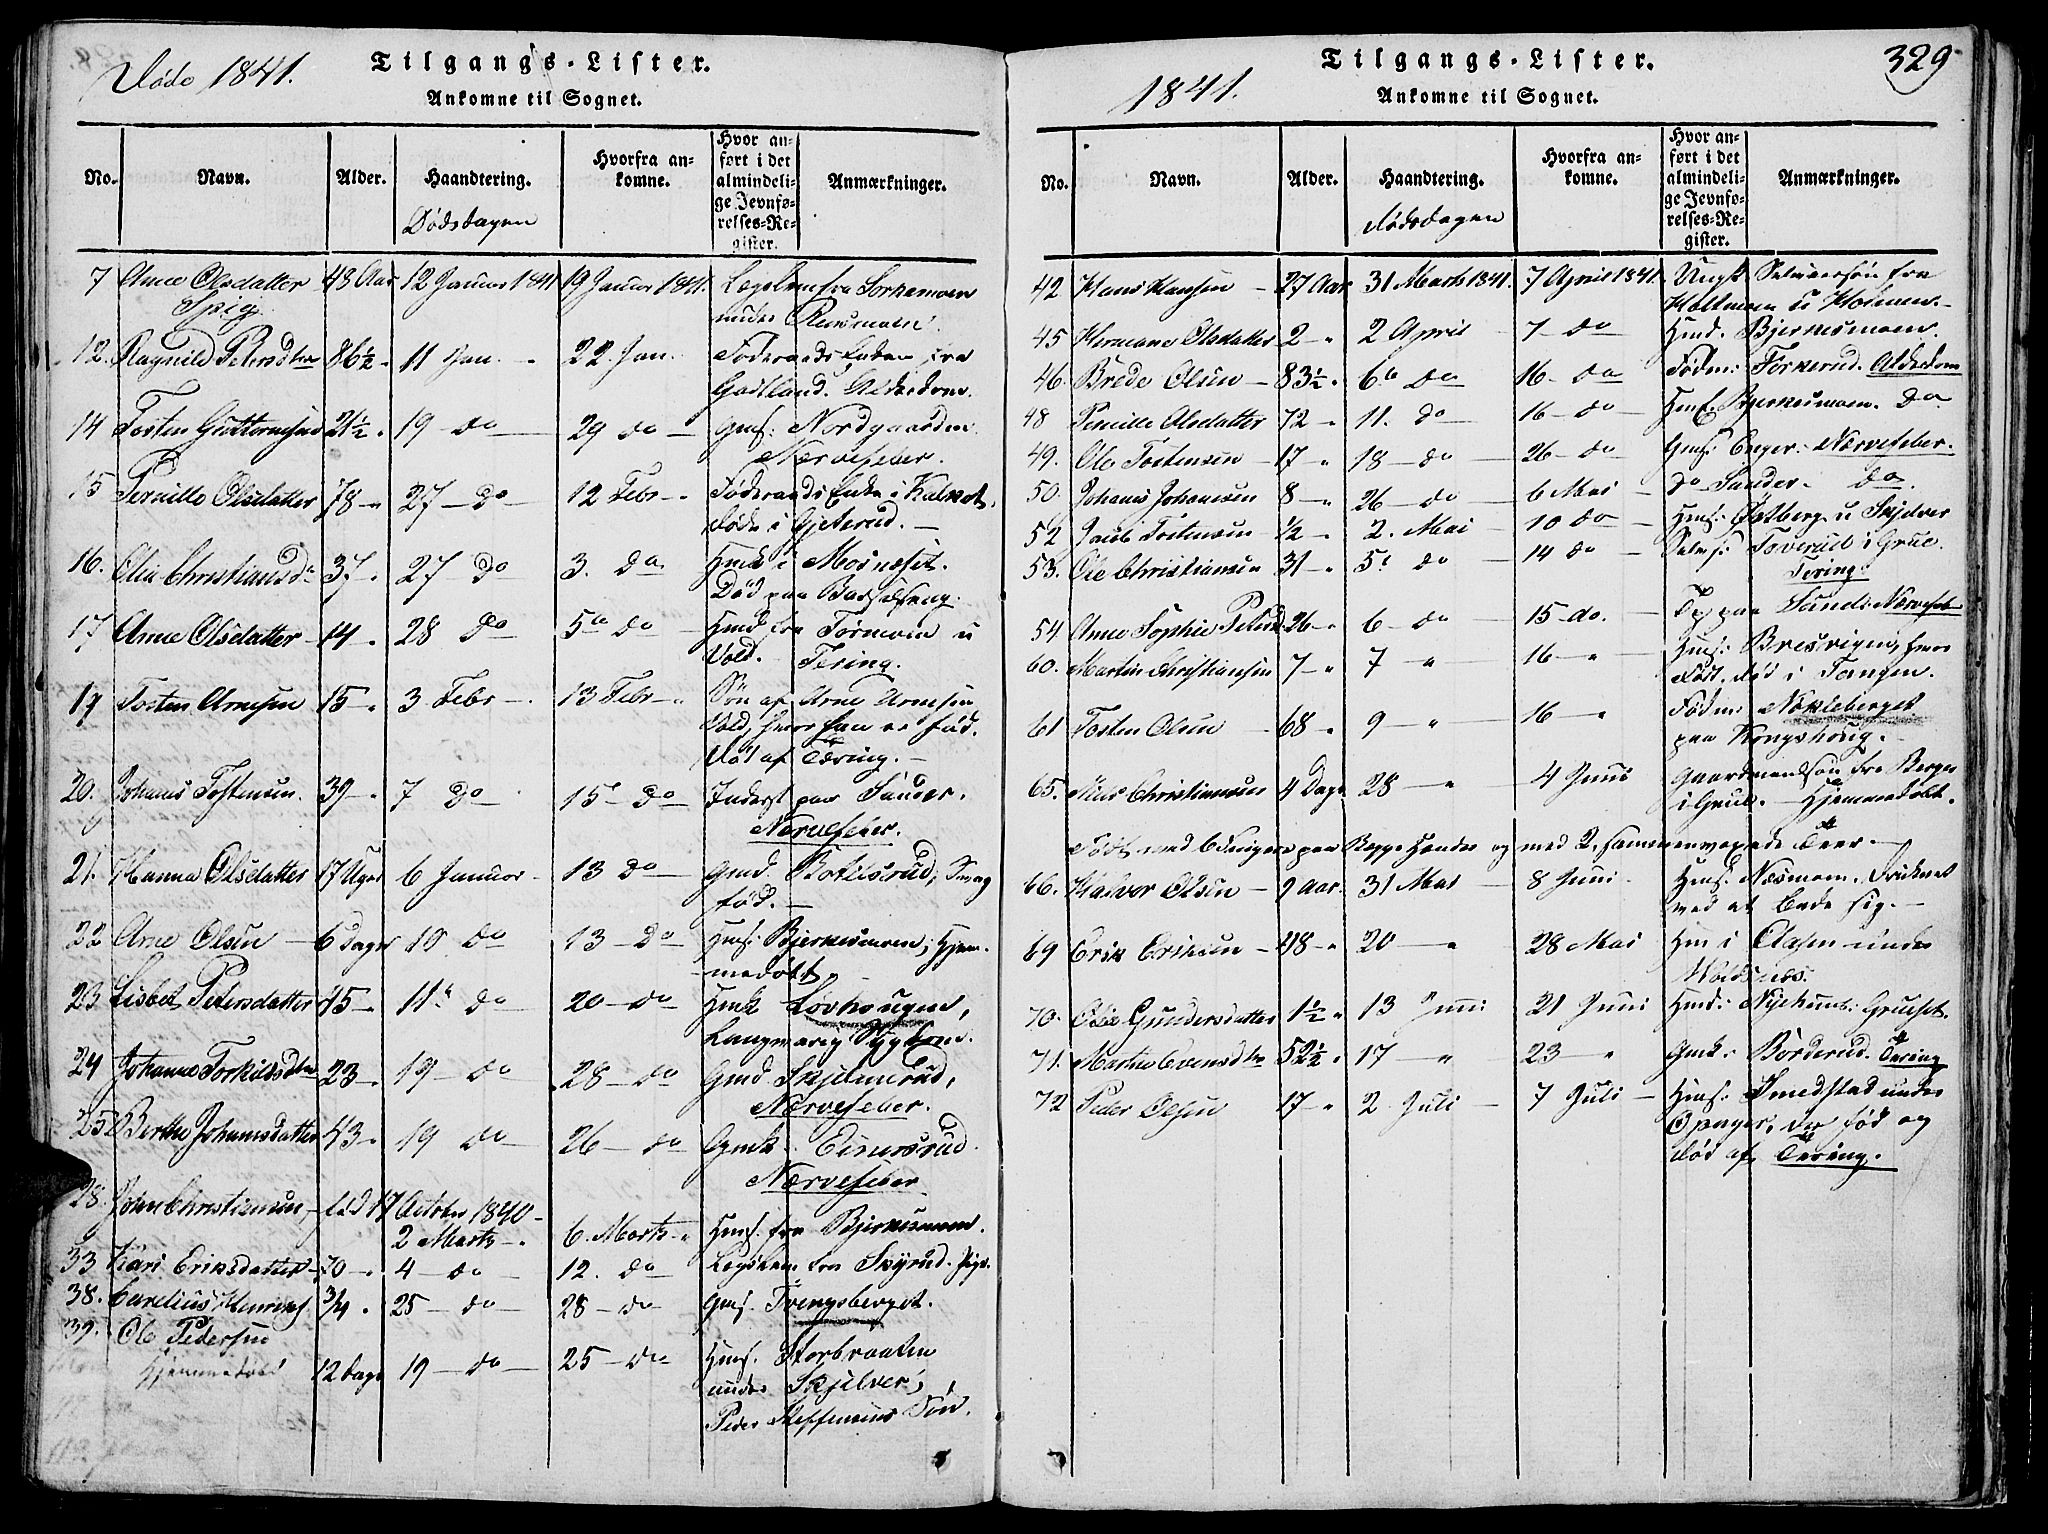 Døde 1841.
Tilgangs-Lister.
Ankomne til Sognet.
No. Navn. Alder. Haandtering. Hvorfra ankomne. Hvor anført i det almindelige Jevnførelses-Register. Anmærkninger.
Dødsdagen
7 Anne Olsdatter 48 Aar 12 Januar 1841 19 Januar 1841. Lægslem fra Sorknæsmoen
Pige. under
12. Ragnild Petersdtr 86½ - 11 Jan. - 22. Jan. Føderaads Enke fra
Godtland. Alderdom.
14 Tosten Guttormsen 21½ - 19 do 29 do - Gms: Nordgaarden
Nærvefeber.
15 Pernille Olsdatter 78 - 27 - do 12 Febr - Føderaads Enke i Kulnot,
døde i Gjeterud. -
16. Olia Christiansd 37 - 27 do 3. do. Hmk i Mosneset.
Død paa Barselseng.
17 Anne Olsdatter - 14 - 28 do 5 do - Hmd fra Tørmoen u
Vold. - Tering.
19 Tosten Arnesen 15 - 3 Febr - 13 Febr - Søn af Arne Arnesen
Vold, hvor han er fød.
Død af Tæring. -
20. Johanes Tostensen. 39 - 7 do 15 - do Inderst paa Sander.
Nærvefeber.
21. Hanna Olsdatter 17 Uger 6 Januar - 13 do - Gmd. Botilsrud, Svag
fød. -
22 Arne Olsen - 6 Dage 10 do 13 - do Hms: Bjernesmoen; Hjem-
medøbt.
23 Lisbet Petersdatter 45 - 11 do 20 - do Hmk Lovhougen,
Langvarig Sygdom.
24 Johanne Torkildsdtr 23 - 19 - do 28 - do Gmd Skjelmerud,
Nærvefeber.
25 Berthe Johannesdatter 43 - 19 do 26 - do Gmk. Einersrud.
Nærvefeber
28. John Christiansen, fød 17 October 1840 -
2 Marts - 6. Marts - Hms. fra Bjernesmoen.
33 Kari Eriksdatter - 70 - 4 - do - 12. do Lægslem fra Skyrud. Pige.
38. Carelius Henriks. ¾ - 25 - do - 28 - do Gms. Tvengsberget.
39. Ole Pedersen
Hjemmedøbt 12 Dage 19 - do - 25 - do Hms. Storbraaten
under Skjelver,
Peder Steffensens Søn.
1841.
Tilgangs-Lister.
Ankomne til Sognet.
329
No. Navn. Alder. Haandtering. Hvorfra ankomne. Hvor anført i det almindelige Jevnførelses-Register. Anmærkninger.
Dødsdagen
42 Hans Hansen - 27 Aar 31 Marts 1841. 7 April 1841. Ungk. Selveiersøn fra
Holtmoen u
45 Hermane Olsdatter 2 - 2 April - 7 - do Hmd: Bjernesmoen.
46. Brede Olsen - 83½ - 6 do 16 - do Fødm: Forkerud. Alderdom
48 Pernille Olsdatter 72 - 11. do 16 - do - Hmk. Bjernesmoen. do
49. Ole Tostensen - 17 - 18 - do 26 - do Gms: Enger. Nærvefeber.
50. Johanes Johannesen 8 - 26 - do - 6 Mai - do Sander. do.
52 Jacob Tostensen ½ - 2. Mai - 10 do - Hms: Østberg u Skjelver
53. Ole Christiansen 31 - 5 do - 14 do - Selvs: Toverud i Grue.
Tering.
54 Anne Sophie Petersd. 26 - 6 - do 15 - do. - Tp paa Sand. Nærvefeb
60. Martin Christiansen 7 - 7 " 16 - " Hms: Bresvigen, hvor
født, død i Tangen.
61 Tosten Olsen - 68 - 9 - " 16 - " Fødm: Nokleberget
paa Kongshoug. -
65. Niels Christiansen 4 Dage 28 - " 4 Juni Gaardmandsøn fra Berger
i Grue. - Hjemmedøbt.
Født med 6 Fingre paa Begge Hænder og med 2 sammenvoxede Tæer. -
66. Halvor Olsen - 9 Aar. 31 Mai - 8 Juni - Hms. Næsmoen. Druknet
ved at bade sig. -
69 Erik Eriksen - 48 - 20 - " 28 Mai Hm i Aasen under
70. Olia Gundersdatter 1½ " 13 Juni 21 Juni Hmd: Gruset.
71. Marthe Evensdtr 52½ - 17 - " 23 - " Gmk: Børderud. Tæring
72 Peder Olsen 17 - 2 Juli - 7 Juli - Hms: Smedstad under
Opager, der fød og
død af Tæring.